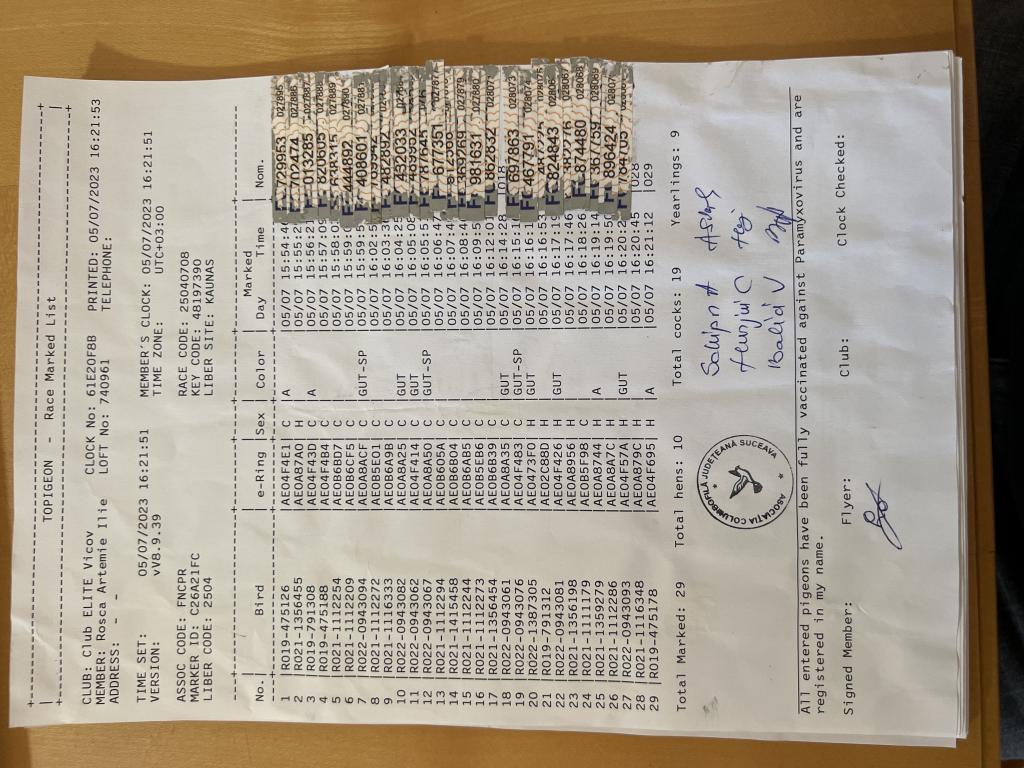 TOPIGEON - Race Marked List
CLUB: Club ELITE Vicov CLOCK No: 61E20F8B PRINTED: 05/07/2023 16:21:53
MEMBER: Rosca Artemie Ilie LOFT No: 740961 TELEPHONE:
ADDRESS: - -
TIME SET: 05/07/2023 16:21:51 MEMBER'S CLOCK: 05/07/2023 16:21:51
VERSION: vV8.9.39 TIME ZONE: UTC+03:00
ASSOC CODE: FNCPR RACE CODE: 25040708
MARKER ID: C26A21FC KEY CODE: 48197390
LIBER CODE: 2504 LIBER SITE: KAUNAS
Marked
No.| Bird | e-Ring |Sex| Color | Day Time | Nom.
1 |RO19-475126 |AE04F4E1| C | A |05/07 15:54:4
2 |RO21-1356455 |AE0A87A0| H | |05/07 15:55:2
3 |RO19-791308 |AE04F43D| C | A |05/07 15:56:2
4 |RO19-475188 |AE04F4B4| C | |05/07 15:57:
5 |RO21-1112254 |AE0B6BD7| C | |05/07 15:58:
6 |RO21-1112209 |AE0B5CF5| C | |05/07 15:59:
7 |RO22-0943094 |AE0A8ACF| C |GUT-SP |05/07 15:59:5
8 |RO21-1112272 |AE0B5E01| C | |05/07 16:02:5
9 |RO21-1116333 |AE0B6A9B| C | |05/07 16:03:3
10 |RO22-0943082 |AE0A8A25| C |GUT |05/07 16:04:25
11 |RO22-0943062 |AE04F414| C |GUT |05/07 16:05:08
12 |RO22-0943067 |AE0A8A50| C |GUT-SP |05/07 16:05:5
13 |RO21-1112294 |AE0B605A| C | |05/07 16:06:4
14 |RO21-1415458 |AE0B6B04| C | |05/07 16:07:4
15 |RO21-1112244 |AE0B6AB5| C | |05/07 16:08:4
16 |RO21-1112273 |AE0B5EB6| C | |05/07 16:09:5
17 |RO21-1356454 |AE0B6B39| C | |05/07 16:12:0
18 |RO22-0943061 |AE0A8A35| C |GUT |05/07 16:14:28 |018
19 |RO22-0943076 |AE04F483| C |GUT-SP |05/07 16:15:1
20 |RO22-1387305 |AE0473F0| H |GUT |05/07 16:16:
21 |RO19-791312 |AE02C88D| H | |05/07 16:16:53
22 |RO22-0943081 |AE04F426| H |GUT |05/07 16:17:19
23 |RO21-1356198 |AE0A8956| H | |05/07 16:17:46
24 |RO21-1111179 |AE0B5F98| C | |05/07 16:18:26
25 |RO21-1359279 |AE0A8744| H | A |05/07 16:19:14
26 |RO21-1112286 |AE0A8A7C| H | |05/07 16:19:50
27 |RO22-0943093 |AE04F57A| H |GUT |05/07 16:20:2
28 |RO21-1116348 |AE0A879C| H | |05/07 16:20:45 |028
29 |RO19-475178 |AE04F695| H | A |05/07 16:21:12 |029
729953 027885
702474 027886
703285 027887
820605 027888
838315 027889
444892 027890
408601 027883
482892
452033
409952
787545
677351 027877
369269 027879
981631 027880
862832
697863 028073
467791 028074
028075
824843
382276 028067
874480 028068
367759 028069
896424 02807
784105
Total Marked: 29 Total hens: 10 Total cocks: 19 Yearlings: 9
ASOCIAȚIA COLUMBOFILĂ JUDEȚEANĂ SUCEAVA
All entered pigeons have been fully vaccinated against Paramyxovirus and are
registered in my name.
Signed Member: Flyer: Club: Clock Checked: